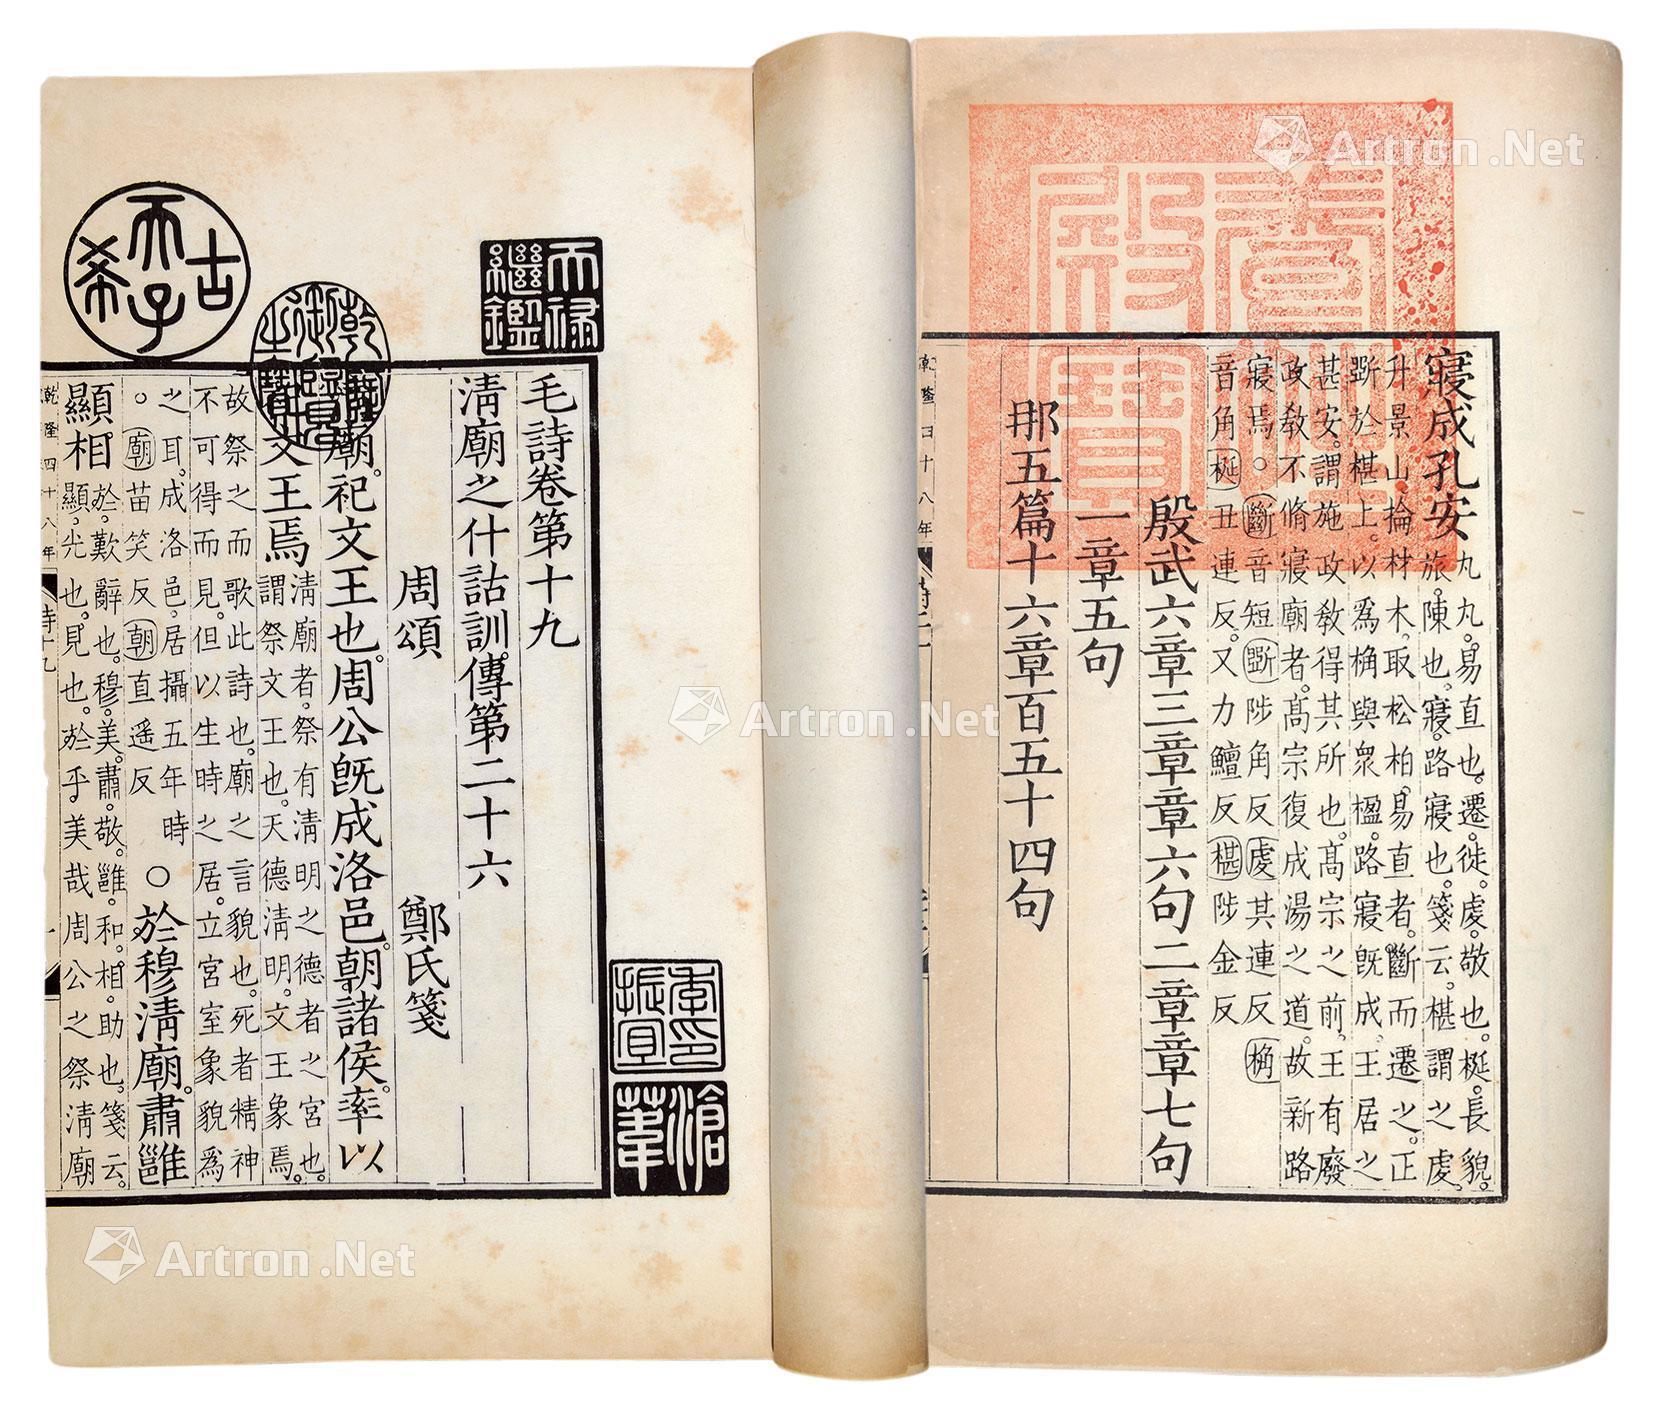 寢成孔安
丸丸。易直也。遷。徙。虔。敬也。梴。長貌。
旅。陳也。寢。路寢也。箋云。椹謂之虔。
升景山掄材木。取松柏。易直者。斷而遷之。正
斲於椹上。以爲桷與衆楹。路寢旣成。王居之
甚安。謂施政敎得其所也。高宗之前。王有廢
政敎不脩寢廟者。高宗復成湯之道。故新路
寢焉。○斷音短斲陟角反虔其連反桷
音角梴丑連反。又力鱣反椹陟金反
殷武六章三章章六句二章章七句
一章五句
那五篇十六章百五十四句
乾隆四十八年
毛詩卷第十九
淸廟之什詁訓傳第二十六
周頌 鄭氏箋
廟。祀文王也。周公旣成洛邑。朝諸侯。率以
文王焉
淸廟者。祭有淸明之德者之宮也。
謂祭文王也。天德淸明。文王象焉。
故祭之而歌此詩也。廟之言貌也。死者精神
不可得而見。但以生時之居。立宮室象貌爲
之耳。成洛邑。居攝五年時
。廟苗笑反朝直遥反
○於穆淸廟。肅雝
顯相
於。歎辭也。穆。美。肅。敬。雝。和。相。助也。箋云。
顯。光也。見也。於乎。美哉周公之祭淸廟
乾隆四十八年
詩十九
一
古希天子
乾隆御覽之寶
天祿繼鑑
季振宜印
滄葦
Artron.Net
Artron.Net
Artron.Net
Artron.Net